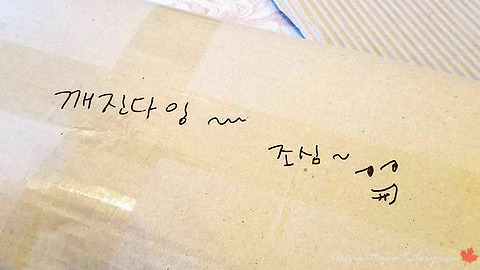 깨진다잉 ~~~
조심~